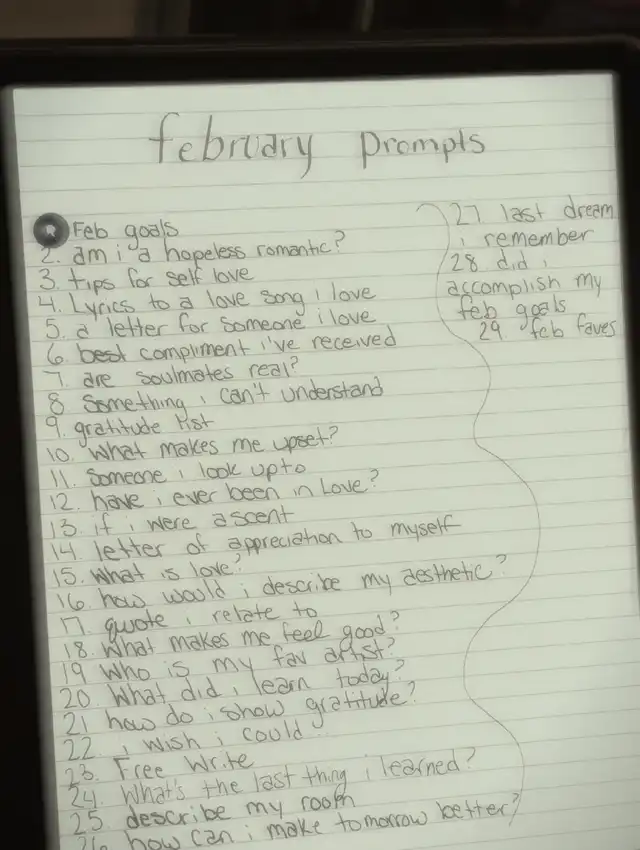 february prompts
Feb goals
2. am i a hopeless romantic?
3. tips for self love
4. Lyrics to a love song i love
5. a letter for someone i love
6. best compliment i've received
7. are soulmates real?
8. Something i can't understand
9. gratitude list
10. What makes me upset?
11. Someone i look up to
12. have i ever been in Love?
13. if i were a scent
14. letter of appreciation to myself
15. What is love?
16. how would i describe my aesthetic?
17. quote i relate to
18. What makes me feel good?
19 Who is my fav artist?
20. What did i learn today?
21 how do i show gratitude?
22. i wish i could...
23. Free Write
24. What's the last thing i learned?
25. describe my room
26 how can i make tomorrow better?
27 last dream
i remember
28 did i
accomplish my
feb goals
29. feb faves